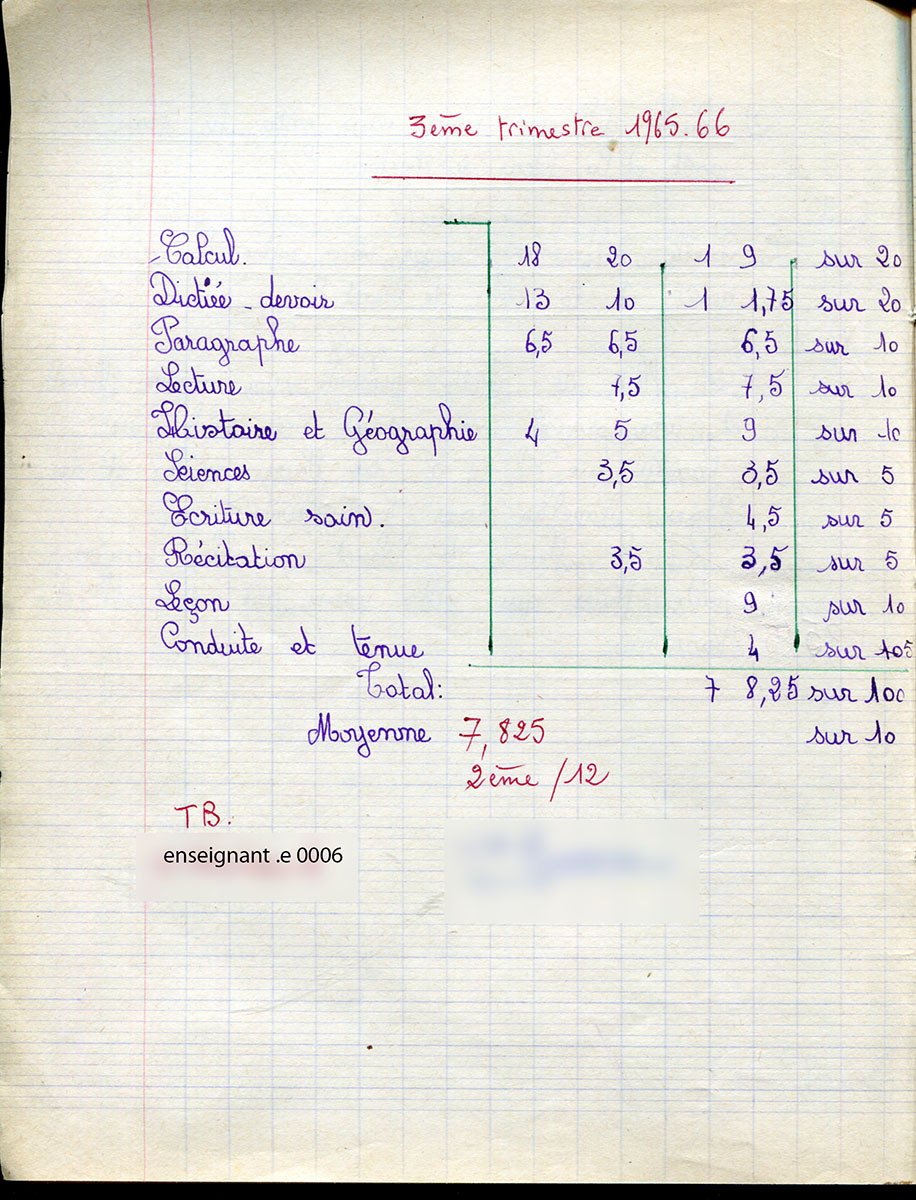 3ème trimestre 1965.66
Calcul. 18 20 1 9 sur 20
Dictiée - devoir 13 10 1 1,75 sur 20
Paragraphe 6,5 6,5 6,5 sur 10
Lecture 7,5 7,5 sur 10
Histoire et Géographie 4 5 9 sur 10
Sciences 3,5 3,5 sur 5
Ecriture soin. 4,5 sur 5
Récitation 3,5 3,5 sur 5
Leçon 9 sur 10
Conduite et tenue 4 sur 105
Total: 7 8,25 sur 100
Moyenne 7,825 sur 10
2ème /12
TB.
enseignant .e 0006